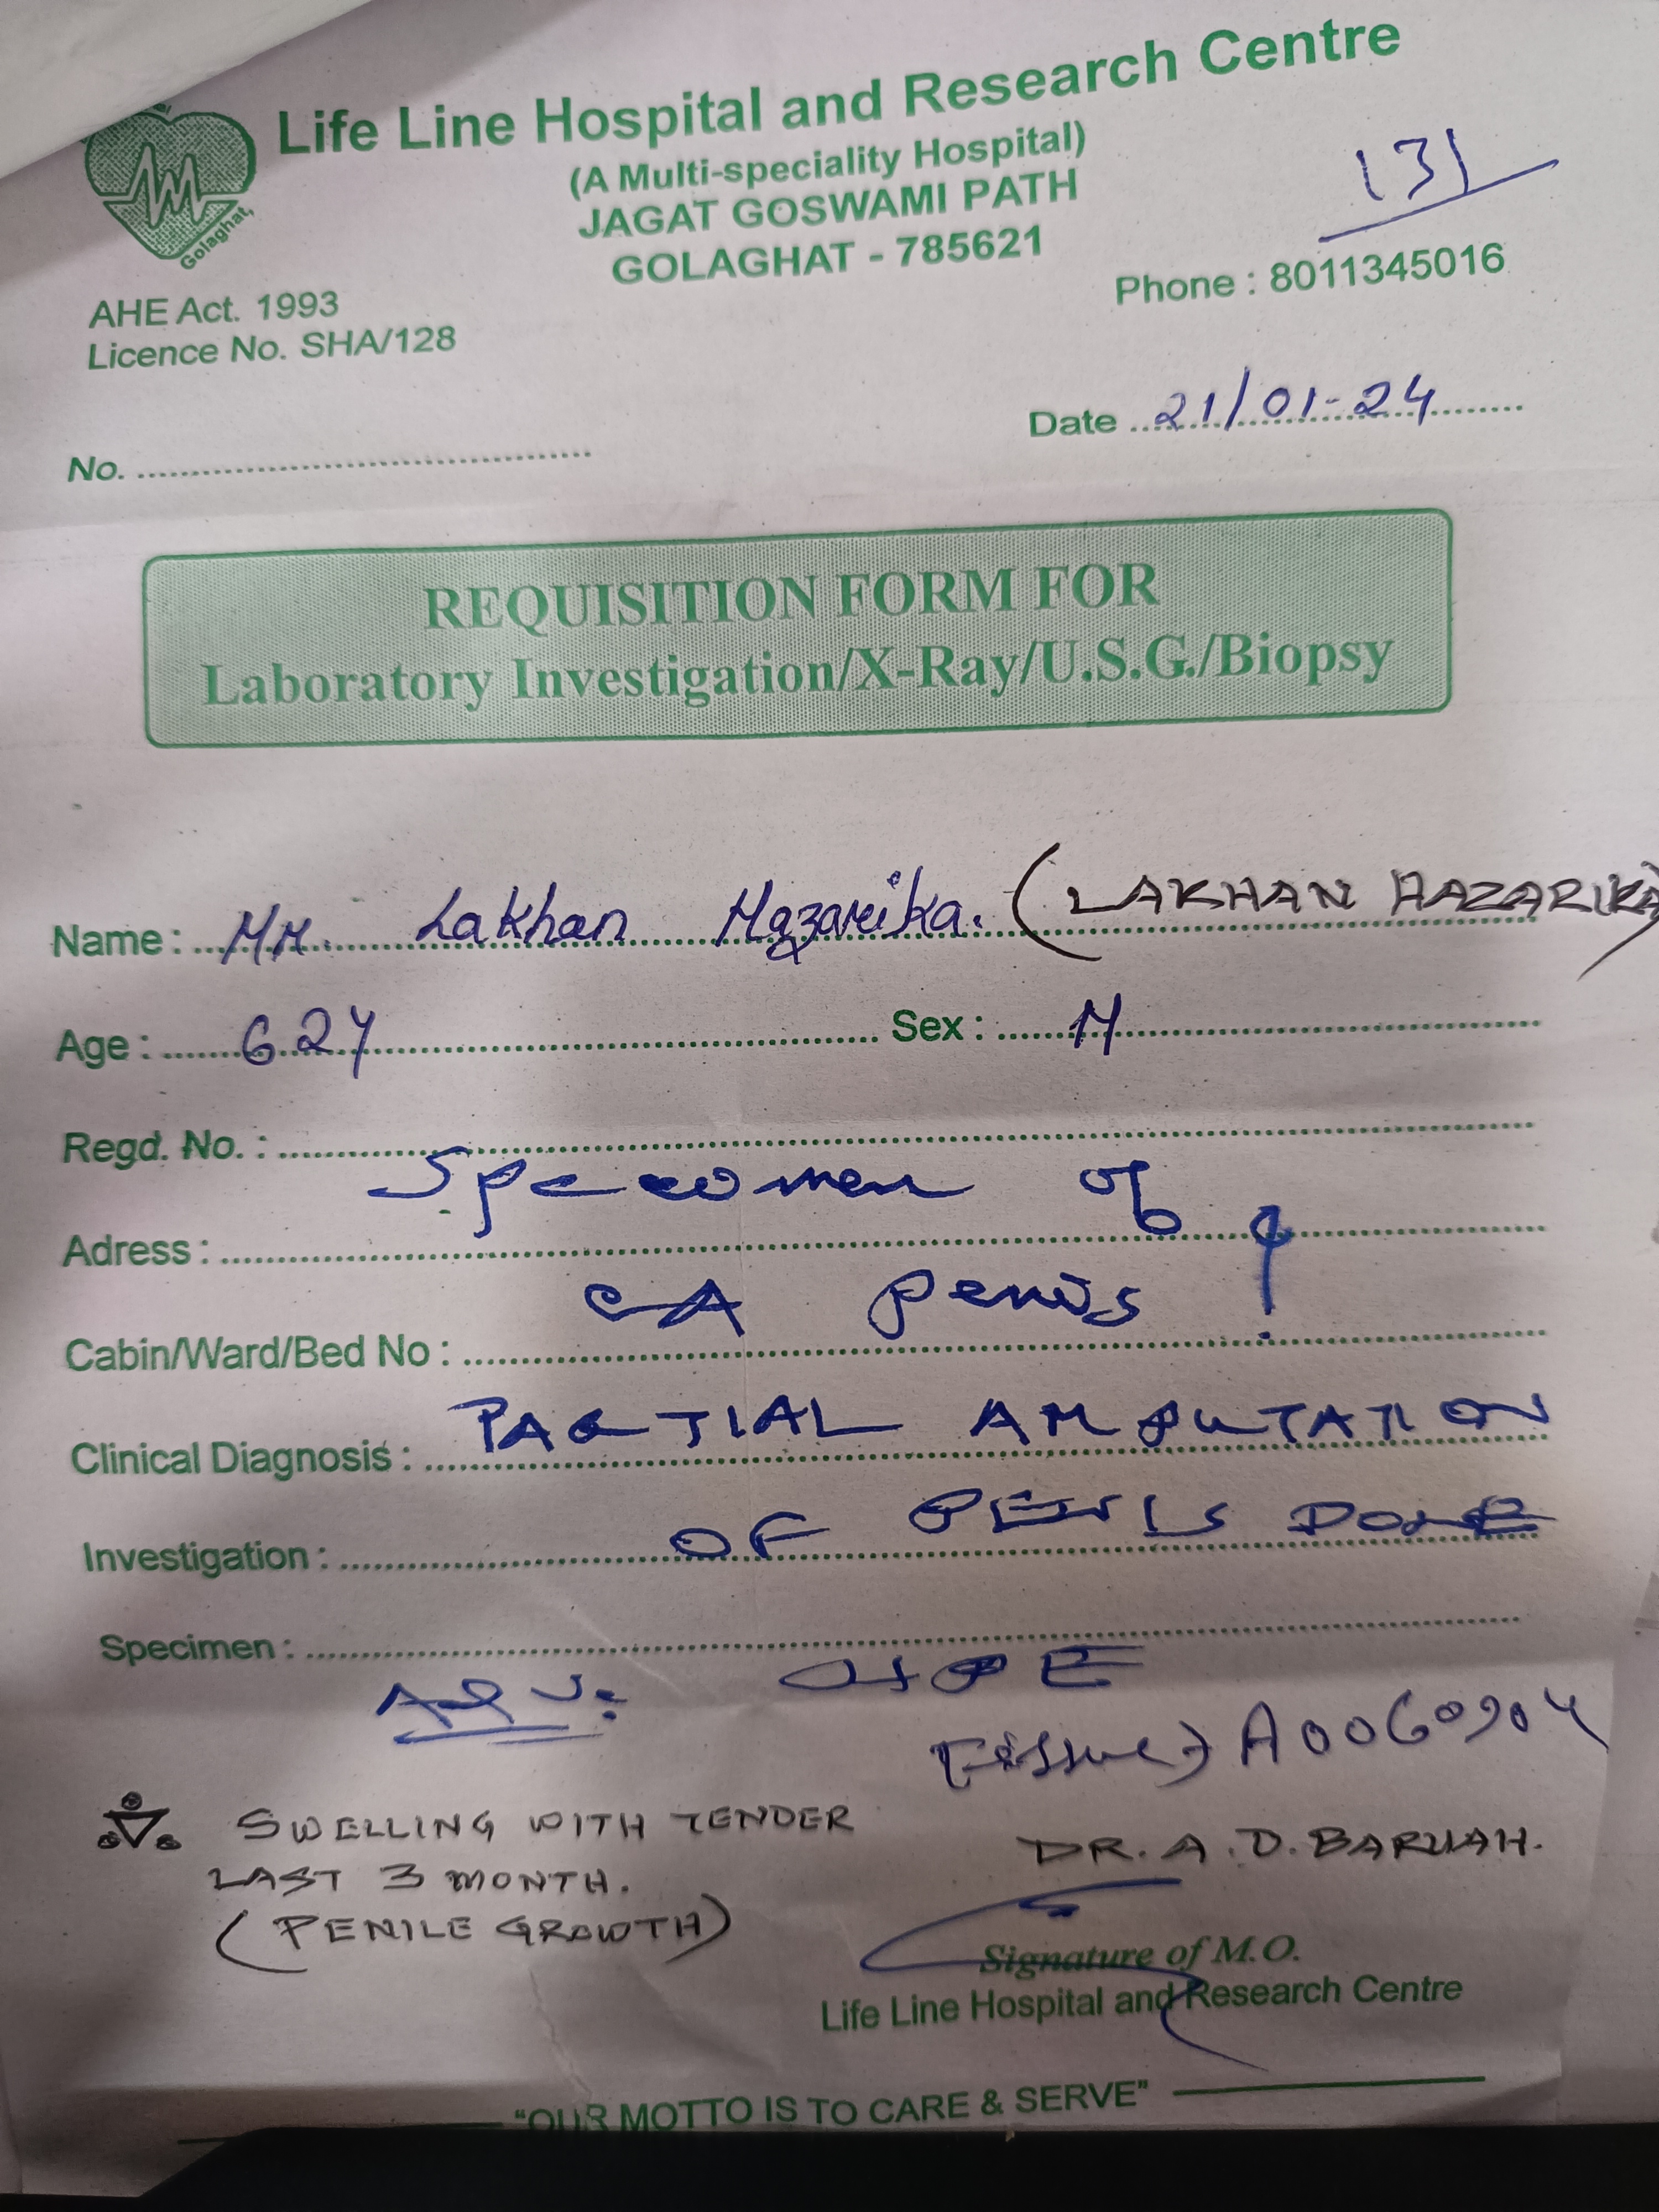 Life Line Hospital and Research Centre
(A Multi-speciality Hospital)
JAGAT GOSWAMI PATH
GOLAGHAT - 785621
Golaghat,
131
Phone : 8011345016
AHE Act. 1993
Licence No. SHA/128
Date 21/01-24
No.
REQUISITION FORM FOR
Laboratory Investigation/X-Ray/U.S.G./Biopsy
Name : Mr. Lakhan Hazarika. (LAKHAN HAZARIKA)
Age : 62Y Sex : M
Regd. No. :
Specimen of
Adress :
CA Penis ?
Cabin/Ward/Bed No :
Clinical Diagnosis : PARTIAL AMPUTATION
Investigation : OF PENIS DONE
Specimen :
Adv: HPE
(Tissue) A0060904
SWELLING WITH TENDER
LAST 3 MONTH.
(PENILE GROWTH)
DR. A. D. BARUAH.
Signature of M.O.
Life Line Hospital and Research Centre
"OUR MOTTO IS TO CARE & SERVE"